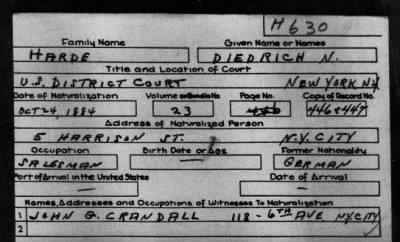 H630
Family Name Given Name or Names
HARDE DIEDRICH N.
Title and Location of Court
U.S. DISTRICT COURT NEW YORK NY
Date of Naturalization Volume or Bundle No. Page No. Copy of Record No.
OCT 24, 1884 23 446+447
Address of Naturalized Person
5 HARRISON ST. N.Y. CITY
Occupation Birth Date or Age Former Nationality
SALESMAN — GERMAN
Port of Arrival in the United States Date of Arrival
— —
Names, Addresses and Occupations of Witnesses To Naturalization
1 JOHN G. CRANDALL 118-6TH AVE NYCITY
2